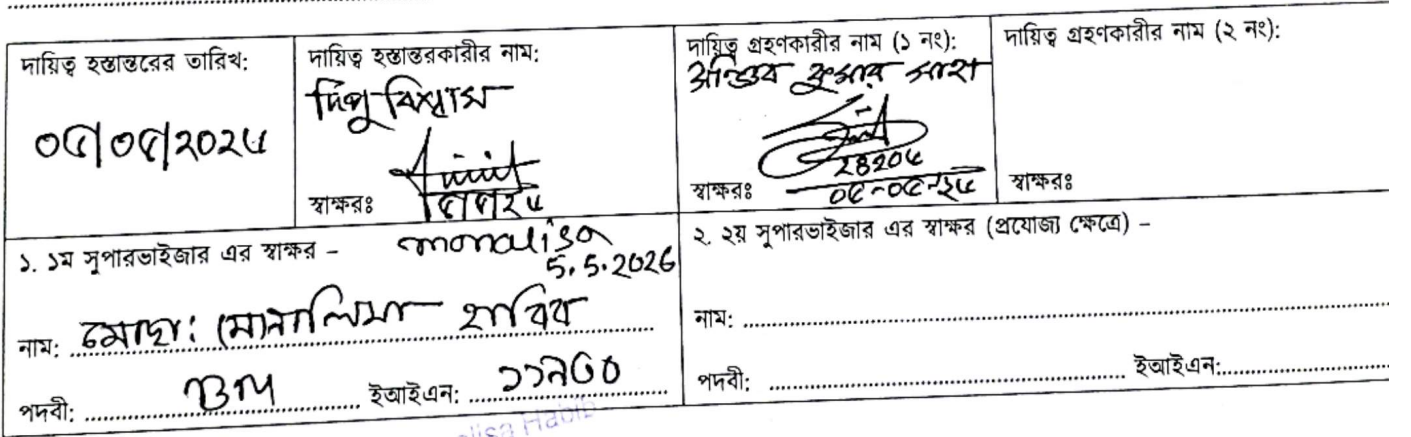 দায়িত্ব হস্তান্তরের তারিখ:
০৫/০৫/২০২৬
দায়িত্ব হস্তান্তরকারীর নাম:
দিপু বিশ্বাস
স্বাক্ষরঃ
৫/৫/২৬
দায়িত্ব গ্রহণকারীর নাম (১ নং):
কুমার সাহা
২৪২০৬
স্বাক্ষরঃ
০৫-০৫-২৬
দায়িত্ব গ্রহণকারীর নাম (২ নং):
স্বাক্ষরঃ
১. ১ম সুপারভাইজার এর স্বাক্ষর –
monalisa
5.5.2026
নাম: মোছা: মোনালিসা হাবিব
পদবী: BM ইআইএন: ১১৯৩৩
২. ২য় সুপারভাইজার এর স্বাক্ষর (প্রযোজ্য ক্ষেত্রে) –
নাম:
পদবী: ইআইএন:
Habib